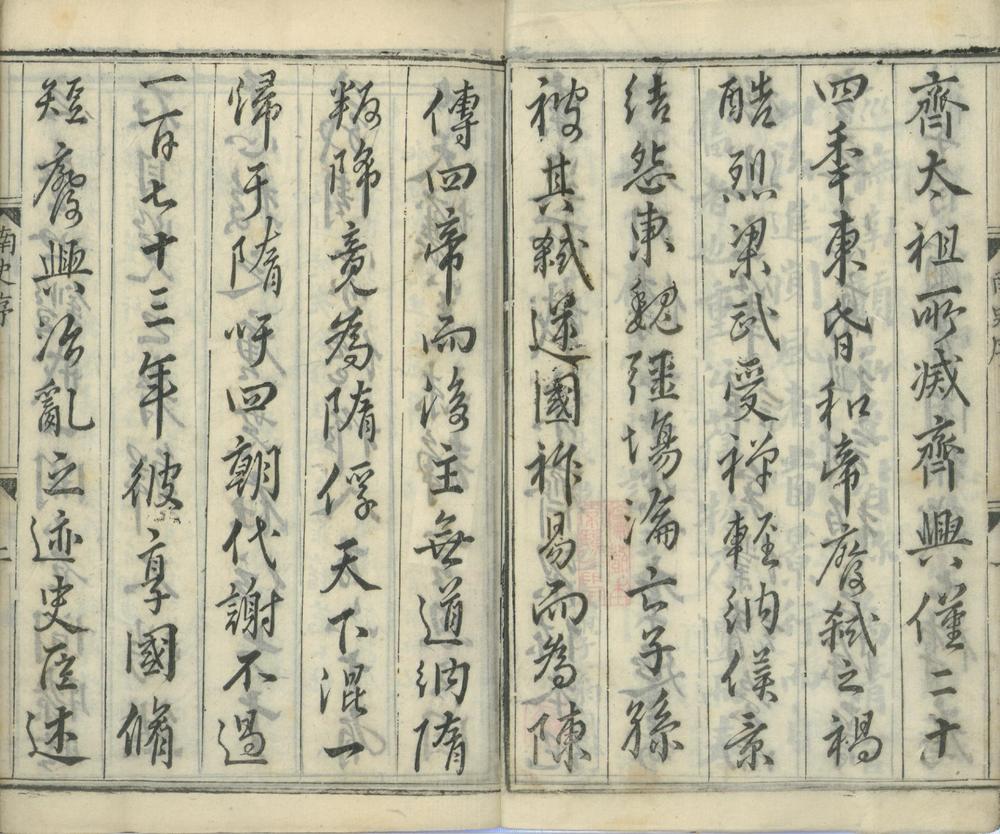 齊太祖所滅齊興僅二十
四年東昏和帝廢弑之禍
酷烈梁武受禪輕納侯景
結怨東魏疆場淪亡子孫
被其弑逆國祚易而為陳
傳四帝而後主無道納隋
叛降竟為隋俘天下混一
歸于隋吁四朝代謝不過
一百七十三年彼享國脩
短廢興治亂之迹史臣述
南史序
二